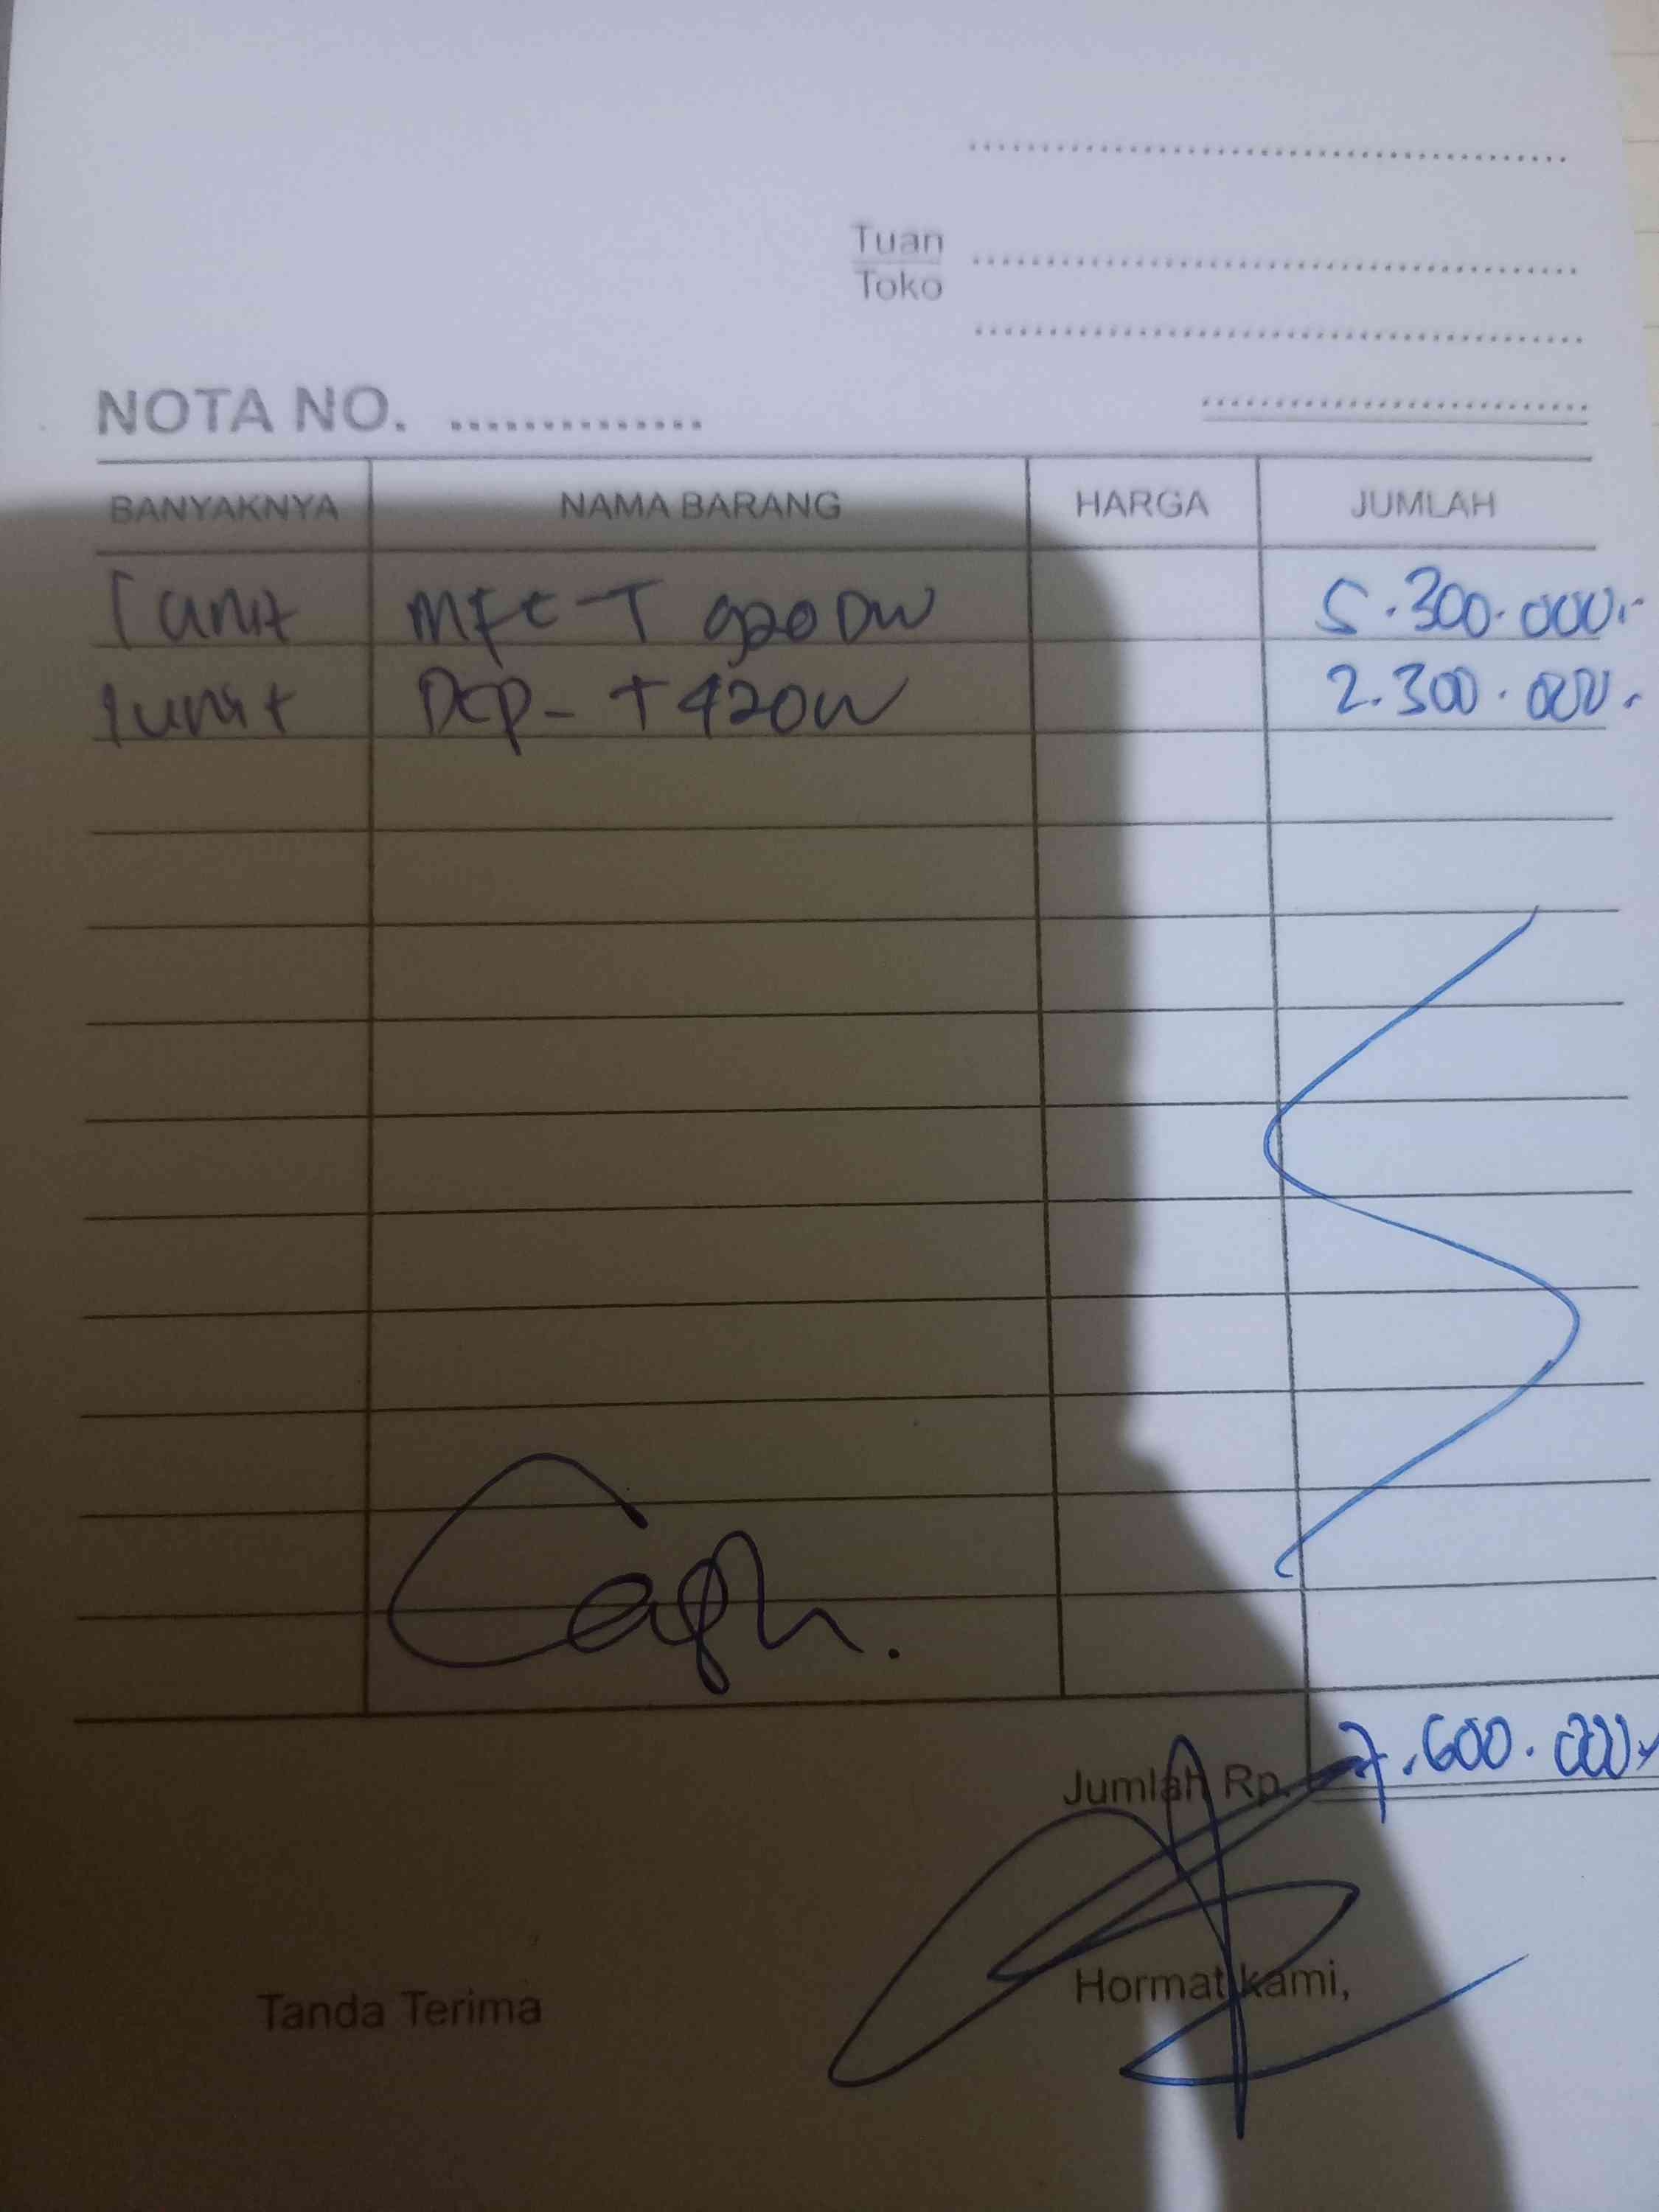 Tuan
Toko
NOTA NO. ..............
BANYAKNYA NAMA BARANG HARGA JUMLAH
1 unit MFC-T 920DW 5.300.000,-
1 unit DCP-T420W 2.300.000,-
Cash.
Jumlah Rp. 7.600.000,-
Tanda Terima Hormat kami,